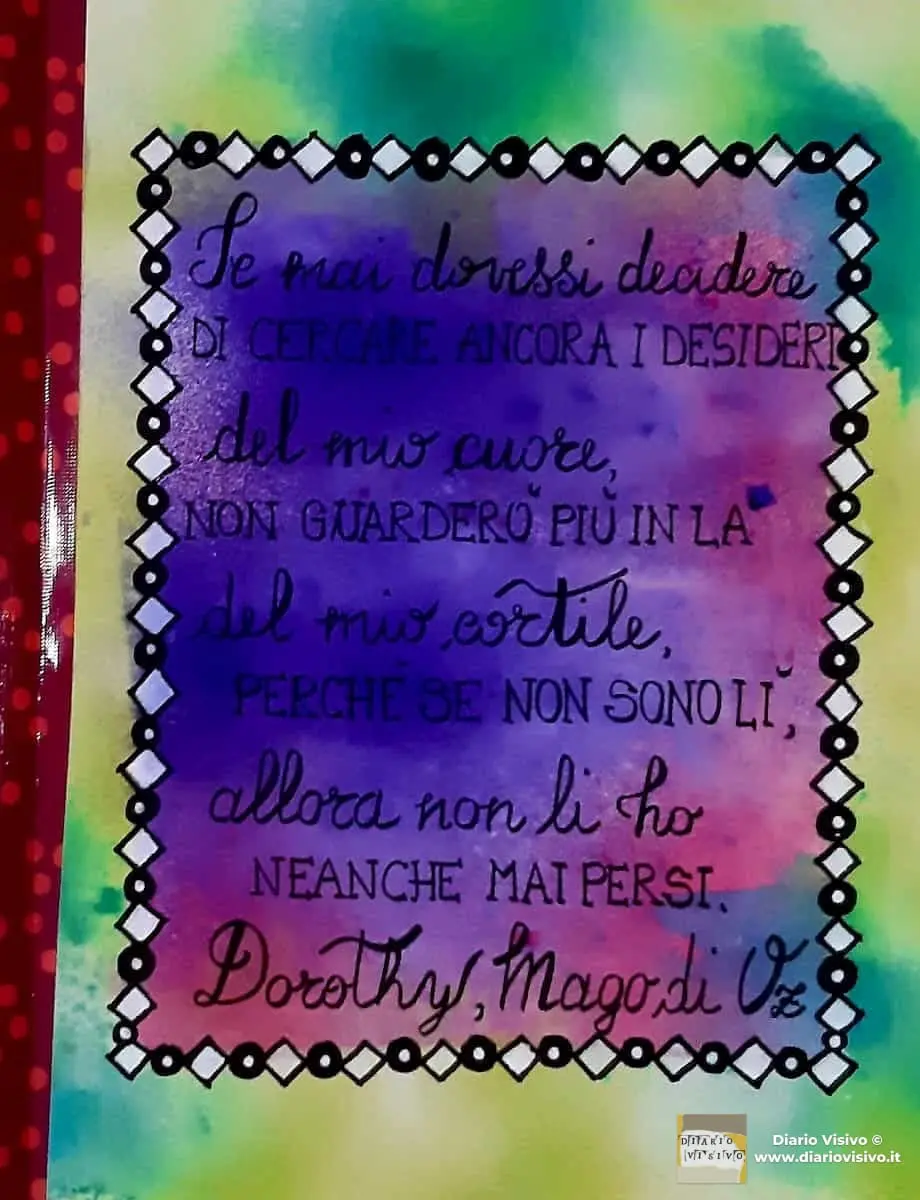 Se mai dovessi decidere
DI CERCARE ANCORA I DESIDERI
del mio cuore,
NON GUARDERÒ PIÙ IN LÀ
del mio cortile,
PERCHÉ SE NON SONO LÌ,
allora non li ho
NEANCHE MAI PERSI.
Dorothy, Mago di Oz
DIARIO
VISIVO
Diario Visivo ©
www.diariovisivo.it